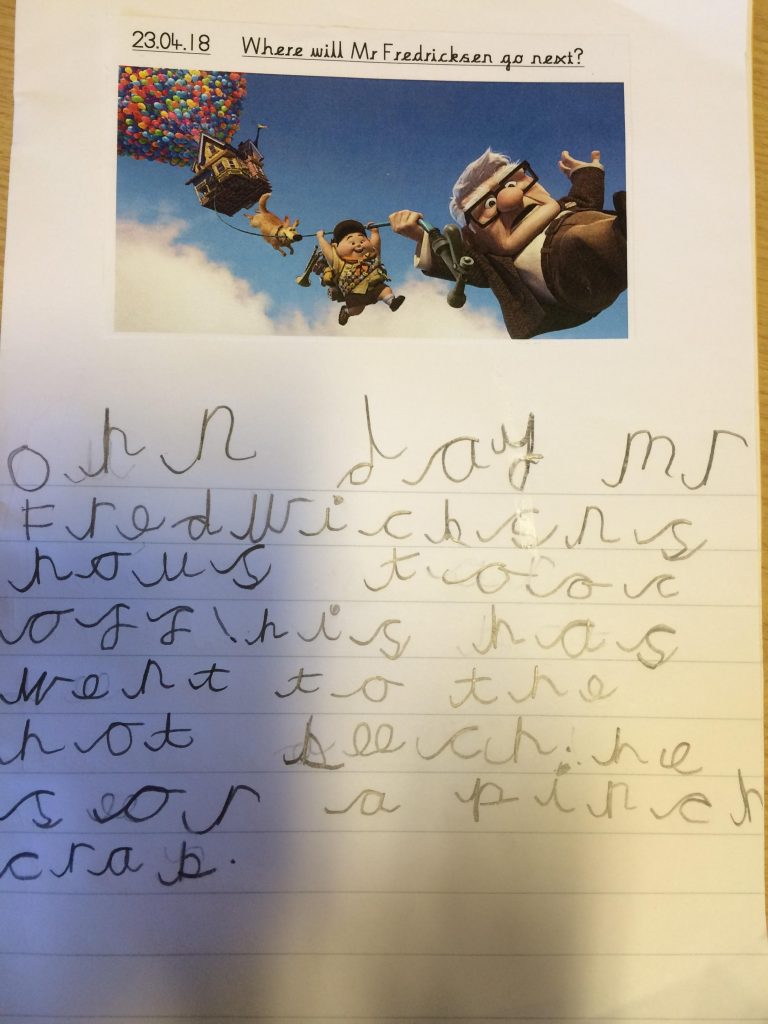 23.04.18 Where will Mr Fredricksen go next?
ohn day mr
Fredwicksns
hous tooc
off his has
went to the
hot beech. he
seor a pinch
crab.